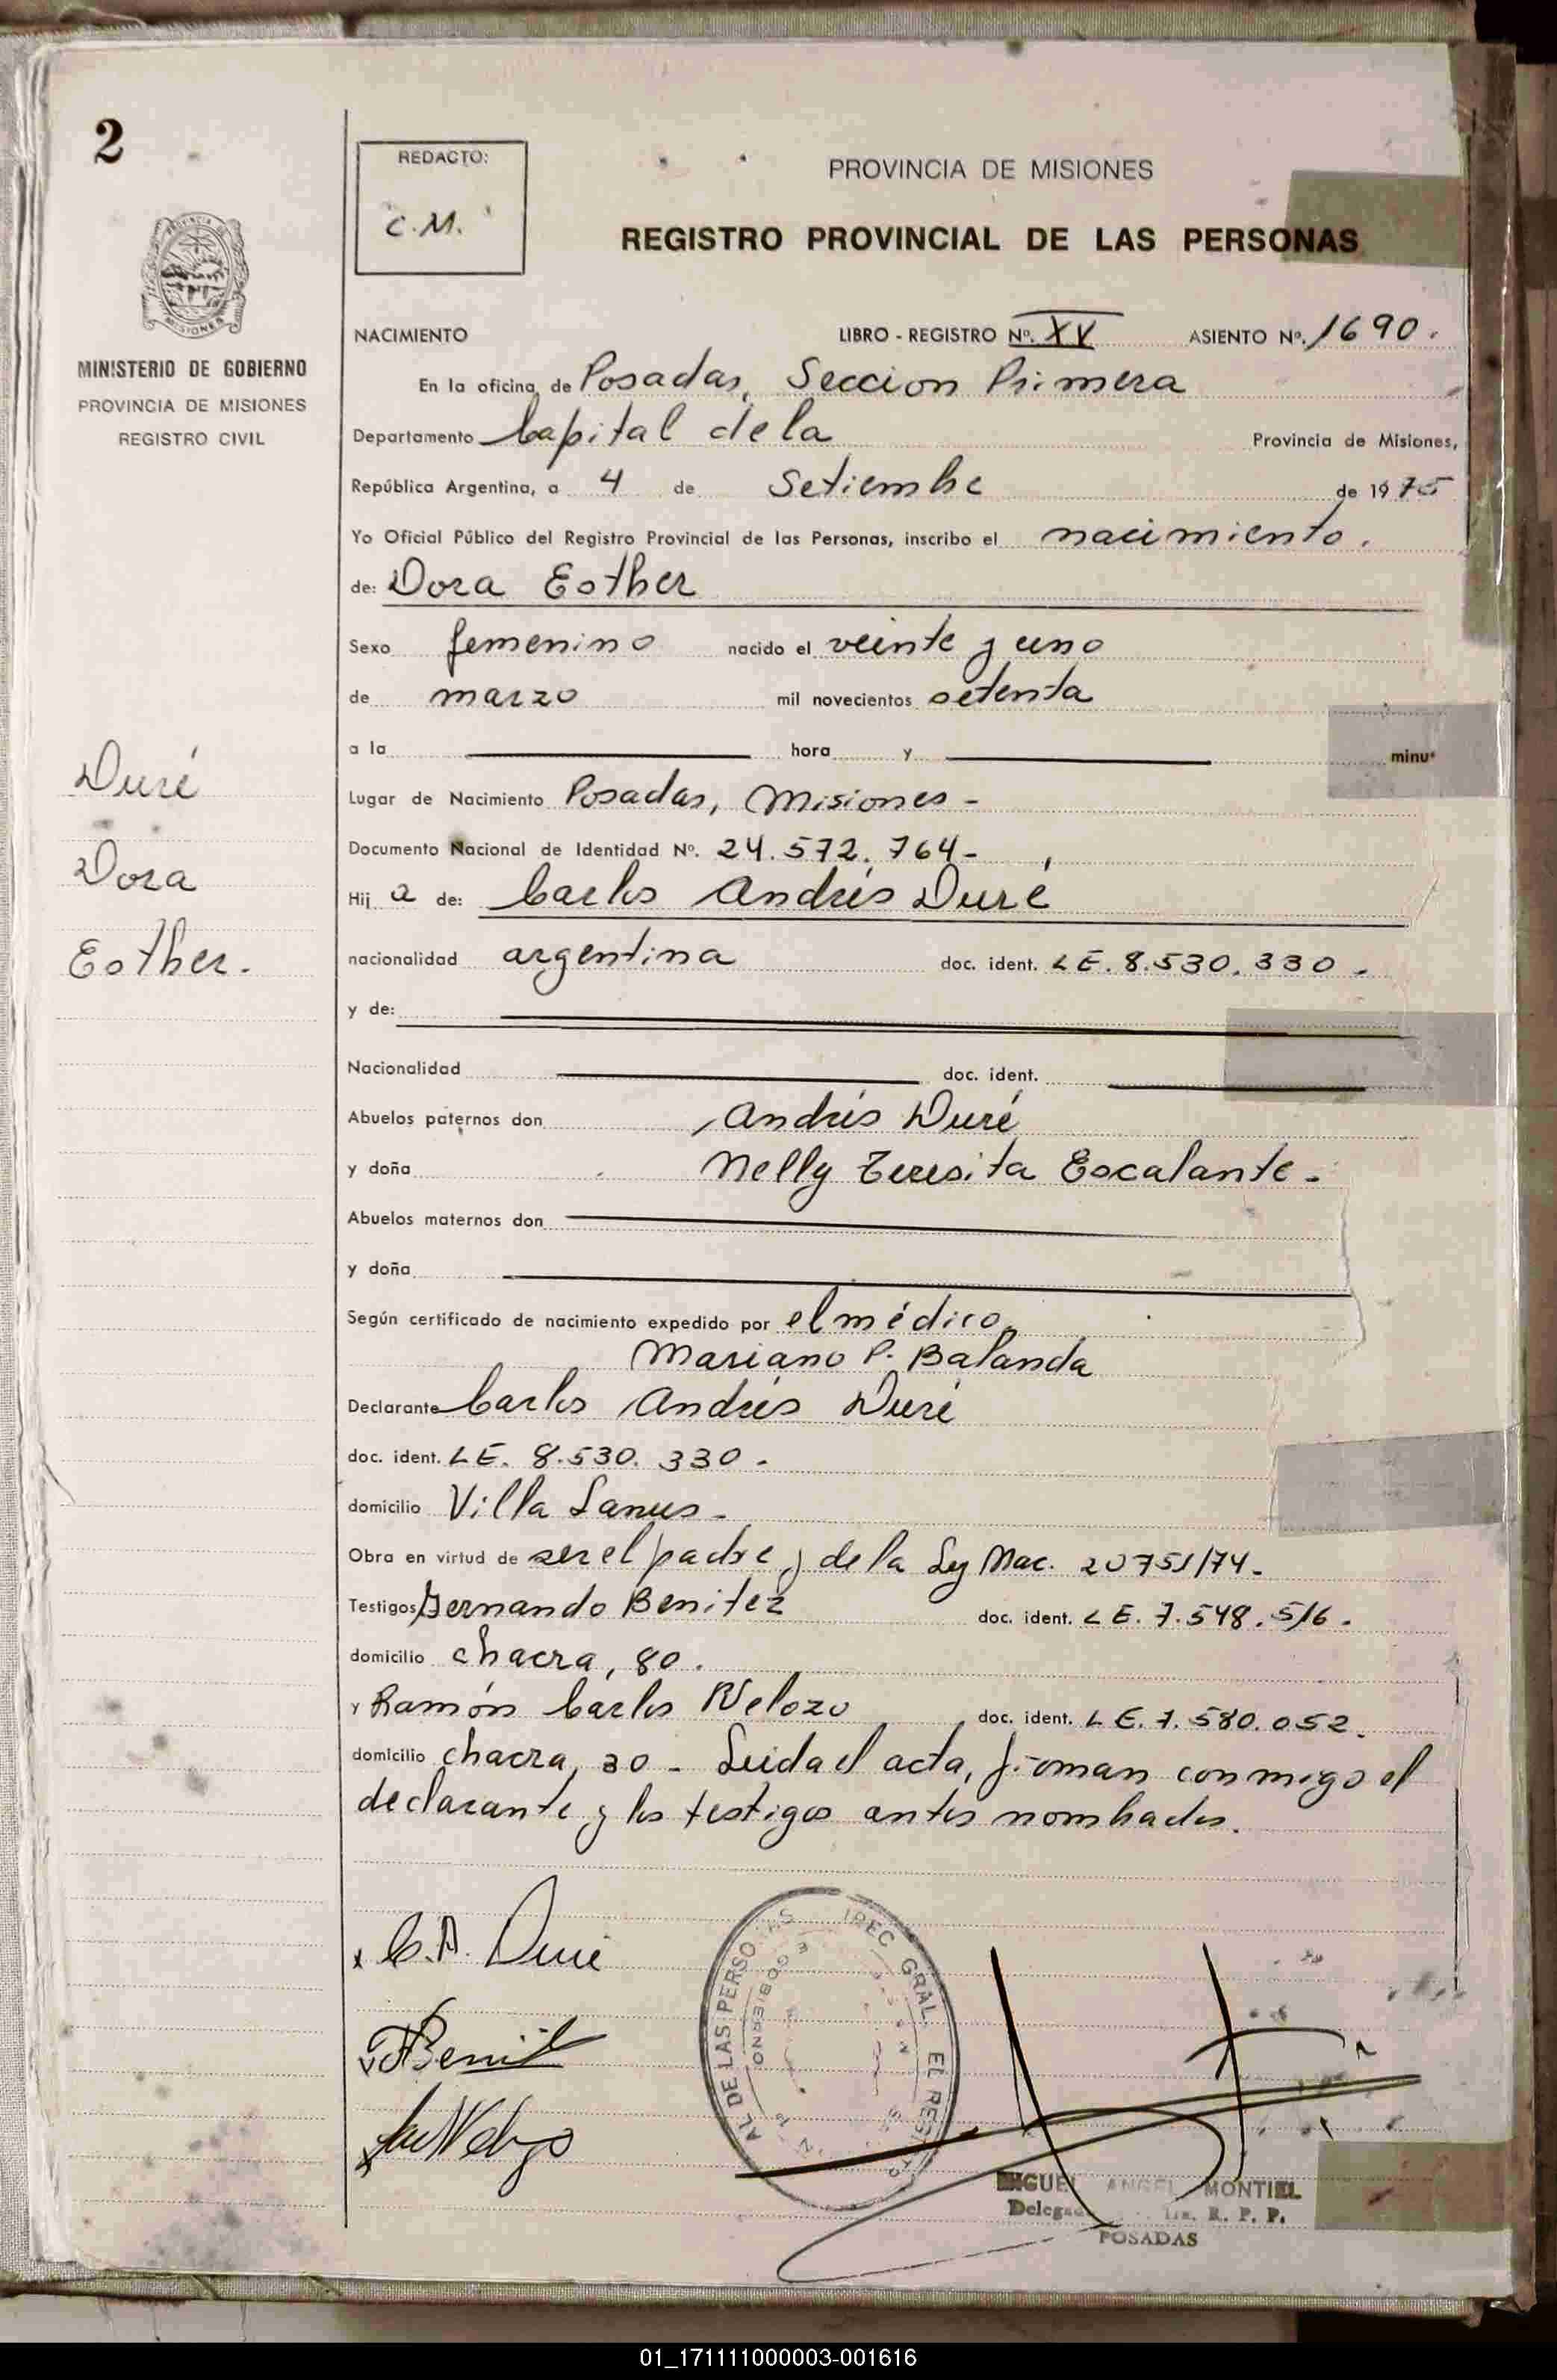 2
REDACTO:
C.M.
PROVINCIA DE MISIONES
REGISTRO PROVINCIAL DE LAS PERSONAS
MINISTERIO DE GOBIERNO
PROVINCIA DE MISIONES
REGISTRO CIVIL
NACIMIENTO LIBRO - REGISTRO Nº. XV ASIENTO Nº. 1690.
En la oficina de Posadas, Seccion Primera
Departamento Capital de la Provincia de Misiones,
República Argentina, a 4 de Setiembre de 1975
Yo Oficial Público del Registro Provincial de las Personas, inscribo el nacimiento.
de: Dora Esther
Sexo femenino nacido el veinte y uno
de marzo mil novecientos setenta
a la hora y minu
Duré
Dora
Esther.
Lugar de Nacimiento Posadas, Misiones -
Documento Nacional de Identidad Nº. 24.572.764-
Hij a de: Carlos Andrés Duré
nacionalidad argentina doc. ident. LE. 8.530.330.
y de:
Nacionalidad doc. ident.
Abuelos paternos don Andrés Duré
y doña Nelly Teresita Escalante.
Abuelos maternos don
y doña
Según certificado de nacimiento expedido por el médico
Mariano P. Balanda
Declarante Carlos Andrés Duré
doc. ident. LE. 8.530.330.
domicilio Villa Lanus.
Obra en virtud de ser el padre y de la Ley Nac. 20751/74.
Testigos Fernando Benitez doc. ident. LE. 7.548.516.
domicilio chacra, 80.
y Ramón Carlos Velozo doc. ident. LE. 7.580.052.
domicilio chacra, 30 - Leida el acta, firman conmigo el
declarante y los testigos antes nombrados.
C.A. Duré
GRAL. EL REGISTRO
AL DE LAS PERSONAS
GOBIERNO
MIGUEL ANGEL MONTIEL
R. P. P.
POSADAS
01_171111000003-001616